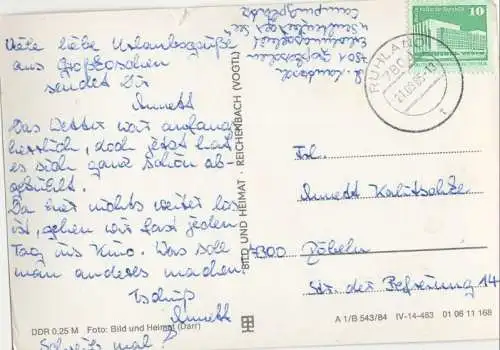 Viele liebe Urlaubsgrüße
aus Großkoschen
sendet Dir
Annett
Das Wetter war anfangs
herrlich, doch jetzt hat
es sich ganz schön ab-
gekühlt.
Da hier nichts weiter los
ist, gehen wir fast jeden
Tag ins Kino. Was soll
man anderes machen?
Tschüß
Annett
Schreib mal!
DDR 0,25 M Foto: Bild und Heimat (Darr)
BILD UND HEIMAT · REICHENBACH (VOGTL)
7801 Großkoschen
Erholungsgebiet
Senftenberger See
Campingplatz
10
RUHLAND
7805
Frl.
Annett
7300 Döbeln
Str. der Befreiung 14
A 1/B 543/84 IV-14-483 01 06 11 168